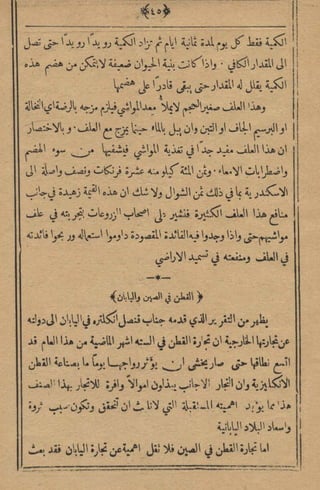 ﴿٤٥﴾
الكمية فقط كل يوم لمدة ثمانية ايام ثم تزاد الكمية رويدًا رويدًا حتى تصل
الى المقدار الكافي . واذا كانت بنية الحيوان ضعيفة لايتمكن من هضم هذه
الكمية يقلل له المقدار حتى يبقى قادرًا على هضمها
وهذا العلف صغير الحجم لايملأ معد المواشي فيلزم مزجه بالرضة اي النخالة
او البرسيم الجاف او التبن وان يبل بالماء حينما يمزج مع العلف . و بالاختصار
ان هذا العلف مفيد جدًا في تغذية المواشي فيشفيها من سوء الهضم
واضطرابات الامعاء . وثمن المئة كيلو منه عشرة فرنكات ونصف واصلة الى
الاسكندرية بما في ذلك ثمن الشوال ولا شك ان هذه القيمة زهيدة في جانب
منافع هذا العلف الكثيرة فنشير على اصحاب الزروعات بتجربته في علف
مواشيهم حتى واذا وجدوا فيه الفائدة المقصودة داوموا استعماله وربحوا فائدته
في العلف ومنفعته في تسميد الاراضي
﴿ القطن في الصين واليابان ﴾
يظهر من التقرير الذي قدمه جناب قنصل انكلتره في اليابان الى دولته
عن تجارتها الخارجية ان تجارة القطن في الستة اشهر الماضية من هذا العام قد
اتسع نطاقها حتى صار يخشى ان يؤثر رواجها يومًا ما بصناعة القطن
الانكليزية وان التجار الاجانب يبذلون اموالًا وافرة للاتجار بهذا الصنف
هذا مما يؤيد اهميته المستقبلة التي لابد ان تتحقق وتكون سبب ثروة
واسعاد البلاد اليابانية
اما تجارة القطن في الصين فلا تقل اهمية عن تجارة اليابان فقد بعث